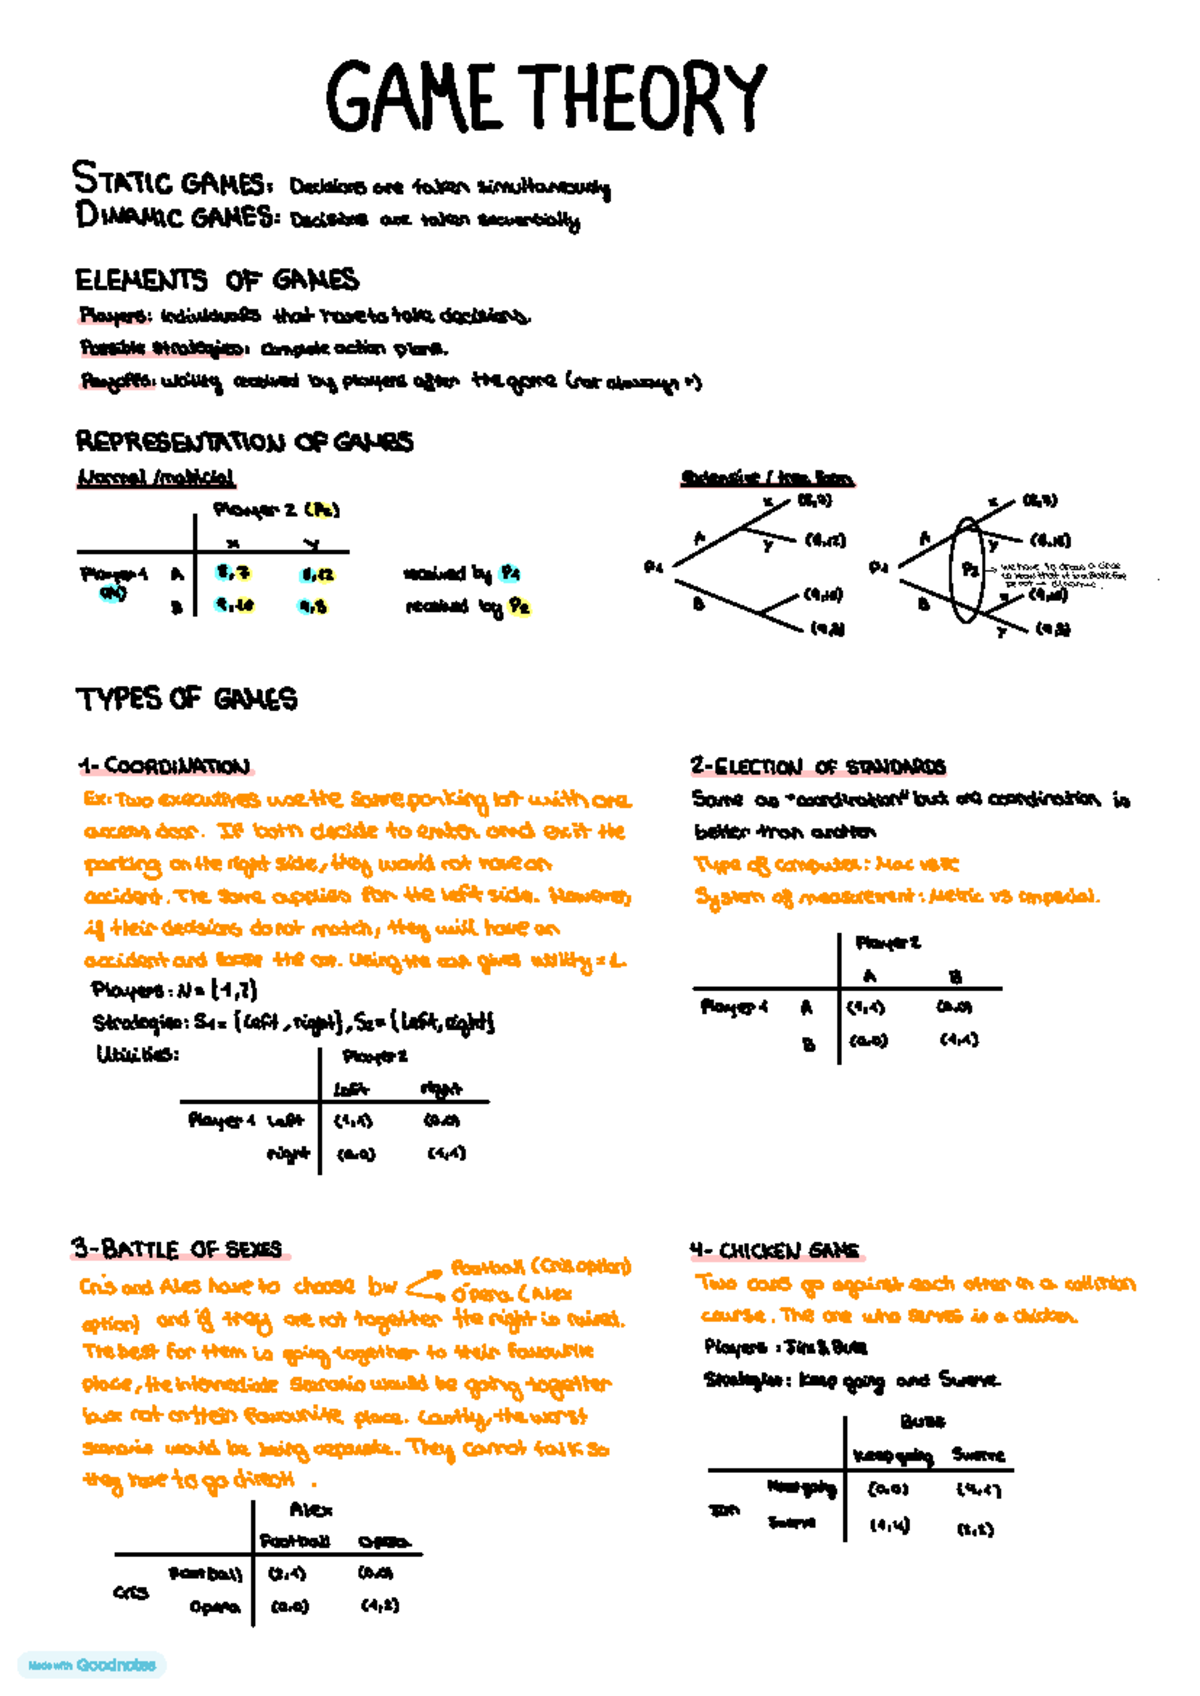 GAME THEORY
STATIC GAMES: Decisions are taken simultaneously
DINAMIC GAMES: Decisions are taken secuentially
ELEMENTS OF GAMES
Players: individuals that have to take decisions.
Possible strategies: complete action plans.
Payoffs: utility received by players after the game
REPRESENTATION OF GAMES
Normal /matricial
Extensive / tree form
Player 2 (P2)
x y
Player 1 A 8,7 6,12 received by P1
B received by P2
P1 A B x y
P1 A B P2 x y
we have to draw a circle
TYPES OF GAMES
1- COORDINATION
Ex: Two executives use the same parking lot with one
access door. If both decide to enter and exit the
parking on the right side, they would not have an
accident. The same applies for the left side. However,
if their decisions do not match, they will have an
accident and loose the car. Using the car gives utility = 1.
Players: N = {1,2}
Strategies: S1 = {left, right}, S2 = {left, right}
Utilities:
Player 2
left right
Player 1 Left (1,1) (0,0)
right (0,0) (1,1)
2- ELECTION OF STANDARDS
Same as "coordination" but one coordination is
better than another
Type of computer: Mac vs PC
System of measurement: Metric vs imperial.
Player 2
A B
Player 1 A (0,0)
B (0,0) (1,1)
3- BATTLE OF SEXES
Cris and Alex have to choose bw Football (Cris option)
Opera (Alex
option) and if they are not together the night is ruined.
The best for them is going together to their favourite
place, the intermediate scenario would be going together
but not on their favourite place. Lastly, the worst
scenario would be being separate. They cannot talk so
they have to go direct.
Alex
Football Opera
Cris Football (2,1) (0,0)
Opera (0,0) (1,2)
4- CHICKEN GAME
Two cars go against each other in a collision
course. The one who serves is a chicken.
Players : Jim & Buzz
Strategies: Keep going and Swerve.
Buzz
Keep going Swerve
Jim Keep going (0,0) (4,1)
Swerve (1,4) (2,2)
Made with Goodnotes